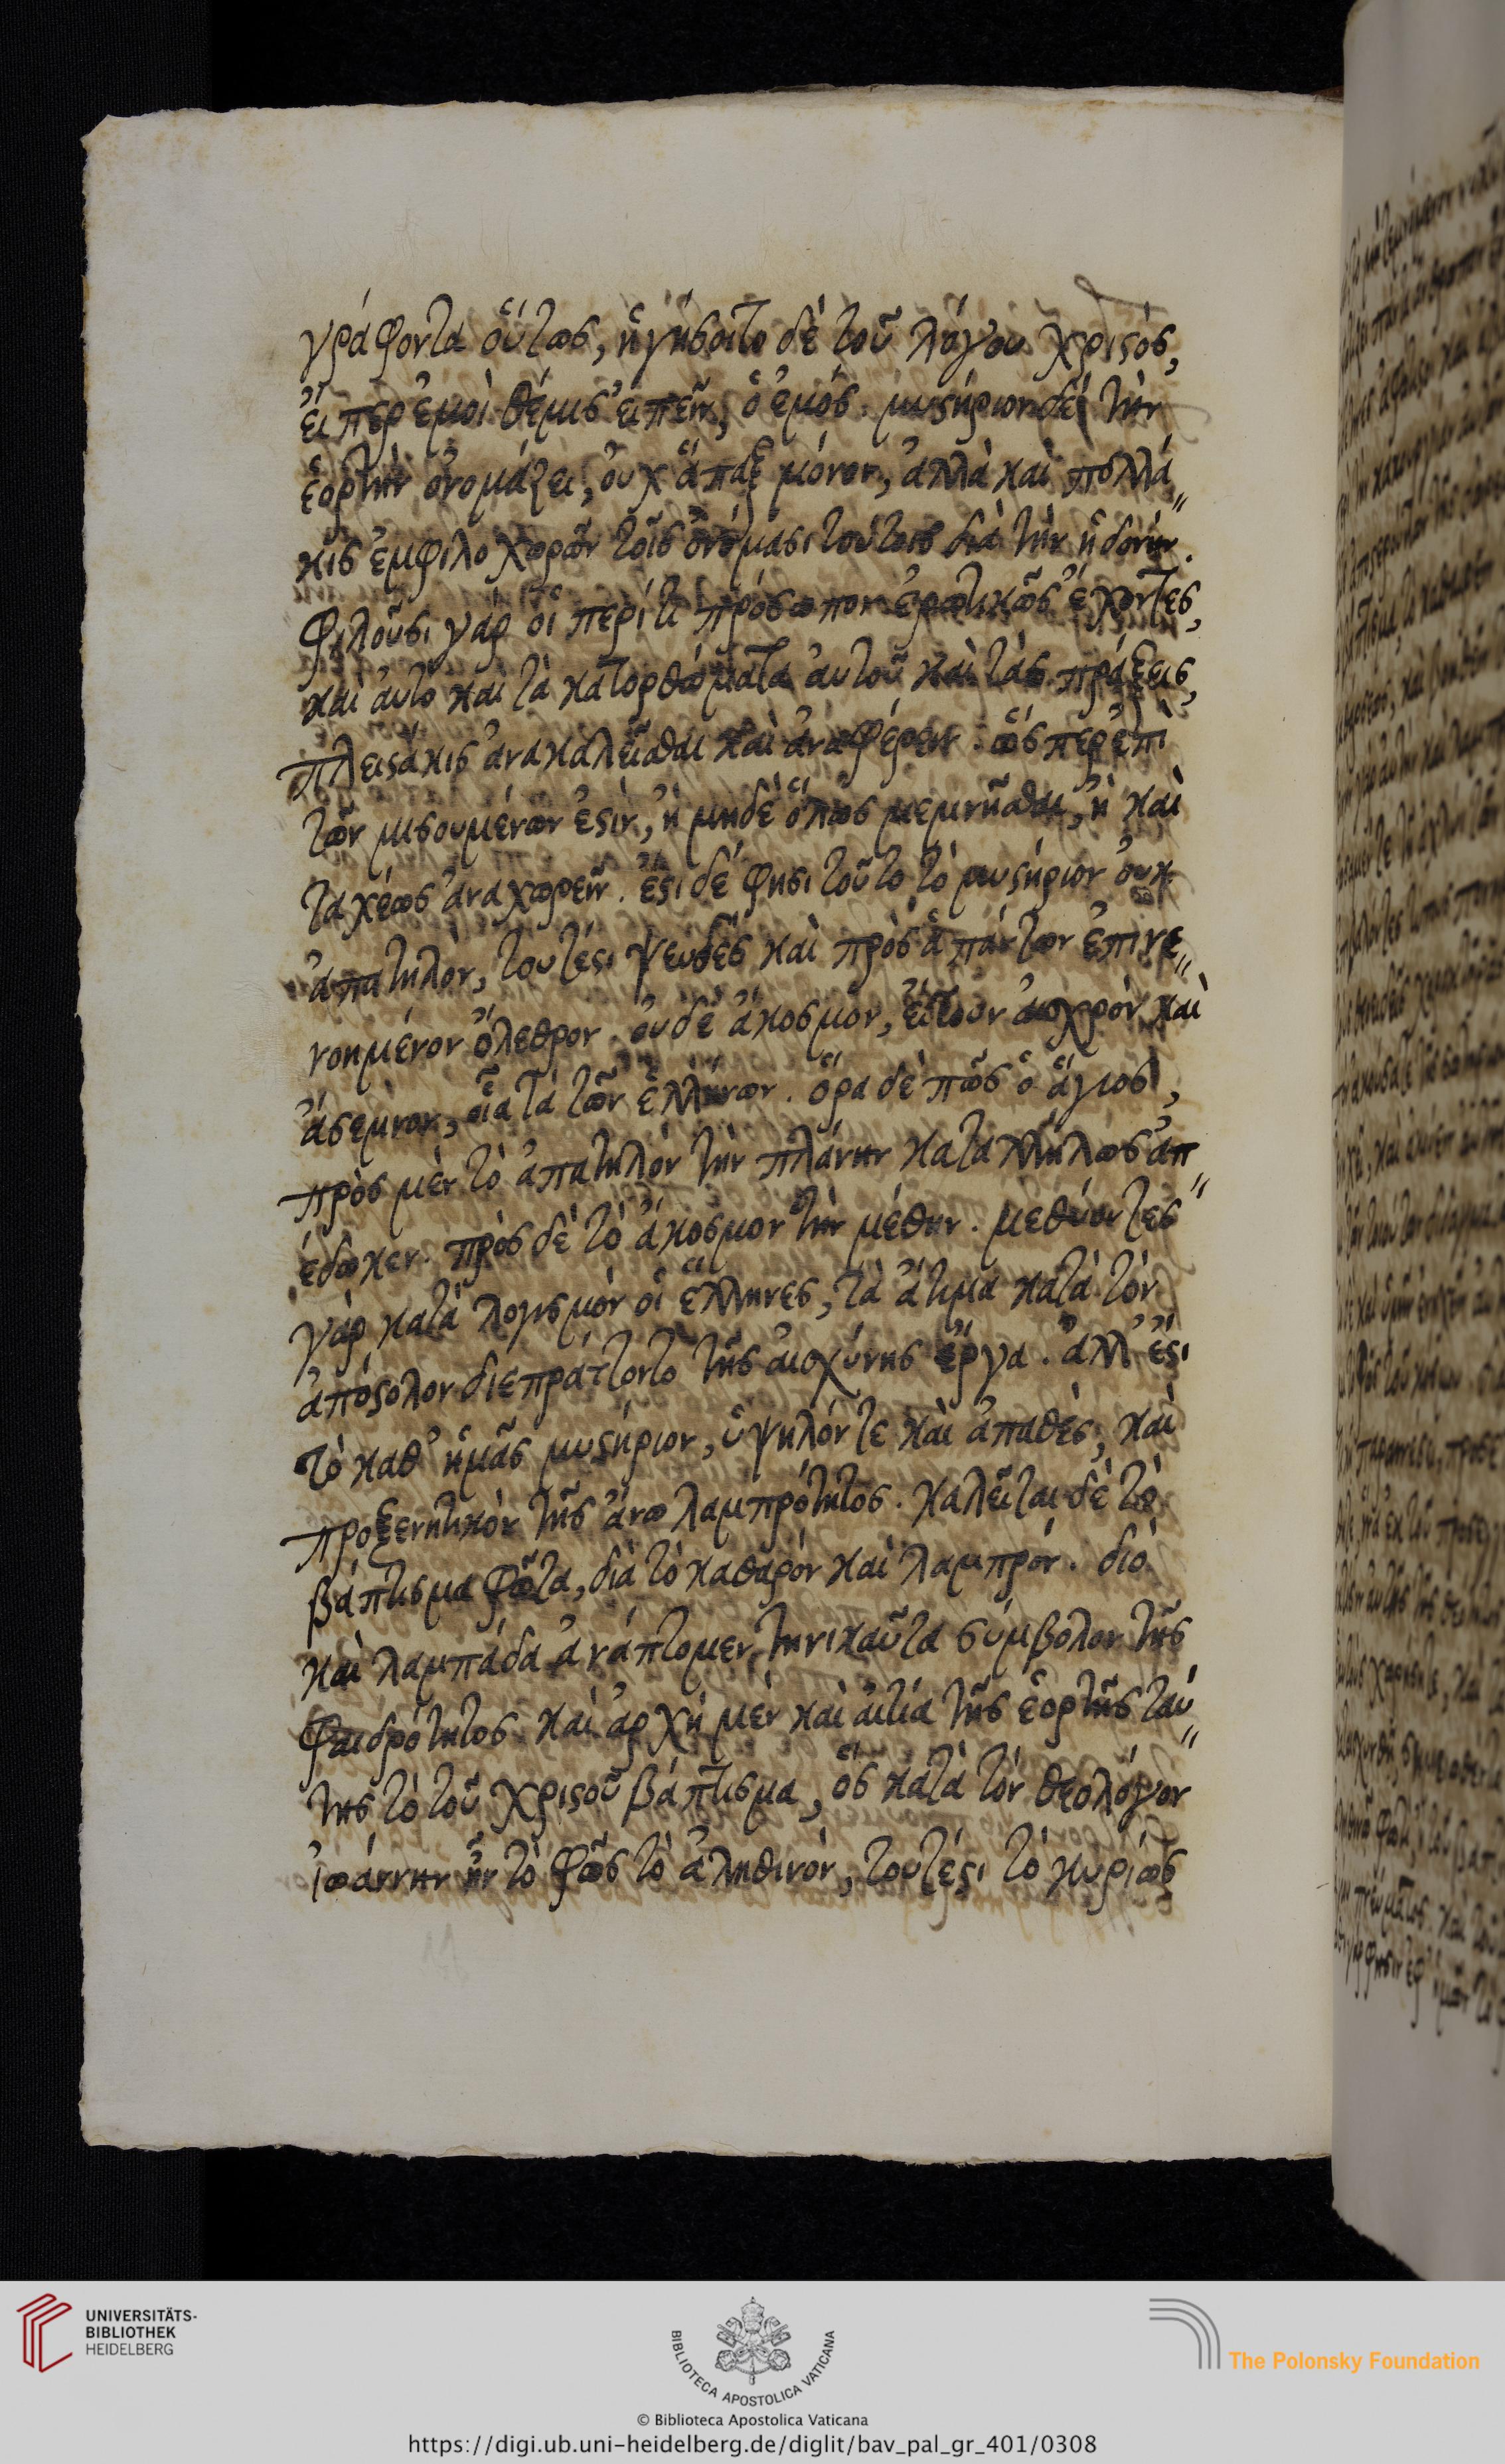 γράφοντα οὕτως, ἡγήσοιτο δὲ τοῦ λόγου χριστὸς,
εἴπερ ἐμοὶ θέμις εἰπεῖν, ὁ ἐμός. μυστήριον δὲ τὴν
ἑορτὴν ὀνομάζει, οὐχ ἅπαξ μόνον, ἀλλὰ καὶ πολλά
κις ἐμφιλοχωρῶν τοῖς ὀνόμασι τούτοις διὰ τὴν ἡδονήν.
φιλοῦσι γάρ οἱ περί τι πρόσωπον ἐρωτικῶς ἔχοντες,
καὶ αὐτὸ καὶ τὰ κατορθώματα αὐτοῦ καὶ τὰς πράξεις,
πλειστάκις ἀνακαλεῖσθαι καὶ ἀναφέρειν. ὥσπερ ἐπὶ
τῶν μισουμένων ἐστὶν, ἢ μηδὲ ὅλως μεμνῆσθαι, ἢ καὶ
ταχέως ἀναχωρεῖν. ἔστι δέ φησι τοῦτο τὸ μυστήριον οὐκ
ἀπατηλὸν, τουτέστι ψευδὲς καὶ πρὸς ἁπάντων ἐπινε
νοημένον ὄλεθρον. οὐδὲ ἄκοσμον, εἴτουν αἰσχρὸν καὶ
ἄσεμνον, οἷα τὰ τῶν ἑλλήνων. ὅρα δὲ πῶς ὁ ἅγιος,
πρὸς μὲν τὸ ἀπατηλὸν τὴν πλάνην καταλλήλως ἀπ
έδωκεν. πρὸς δὲ τὸ ἄκοσμον τὴν μέθην. μεθύοντες
γὰρ κατὰ λογισμὸν οἱ ἕλληνες, τὰ ἄτιμα κατὰ τὸν
ἀπόστολον διεπράττοντο τῆς αἰσχύνης ἔργα. ἀλλ' ἔστι
τὸ καθ' ἡμᾶς μυστήριον, ὑψηλόν τε καὶ ἀπαθὲς, καὶ
προξενητικὸν τῆς ἄνω λαμπρότητος. καλεῖται δὲ τὸ
βάπτισμα φῶτα, διὰ τὸ καθαρὸν καὶ λαμπρόν. διὸ
καὶ λαμπάδα ἀνάπτομεν τηνικαῦτα σύμβολον τῆς
φαιδρότητος καὶ ἀρχὴ μὲν καὶ αἰτία τῆς ἑορτῆς ταύ
της τὸ τοῦ χριστοῦ βάπτισμα, ὃς κατὰ τὸν θεολόγον
ἰωάννην ἦν τὸ φῶς τὸ ἀληθινὸν, τουτέστι τὸ κυρίως
UNIVERSITÄTS-
BIBLIOTHEK
HEIDELBERG
BIBLIOTECA APOSTOLICA VATICANA
The Polonsky Foundation
© Biblioteca Apostolica Vaticana
https://digi.ub.uni-heidelberg.de/diglit/bav_pal_gr_401/0308